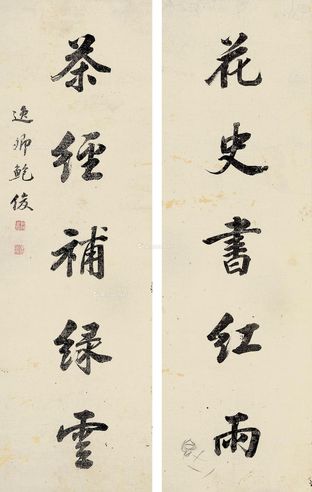 花史書紅雨
茶經補緑雲
逸卿鮑俊